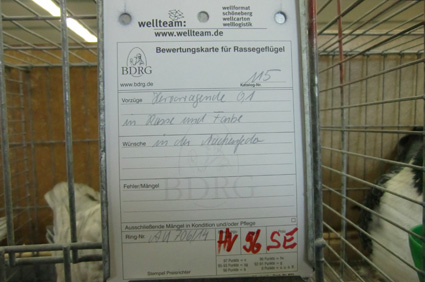 wellteam:
www.wellteam.de
wellformat
schöneberg
wellcarten
welllogistik
Bewertungskarte für Rassegeflügel
BDRG
www.bdrg.de
115
Katalog Nr.
Vorzüge Hervorragende 0,1
in Rasse und Farbe
Wünsche in der
BDRG
Fehler/Mängel
Ausschließende Mängel in Kondition und/oder Pflege
Ring Nr.
HV 96 SE
Stempel Preisrichter